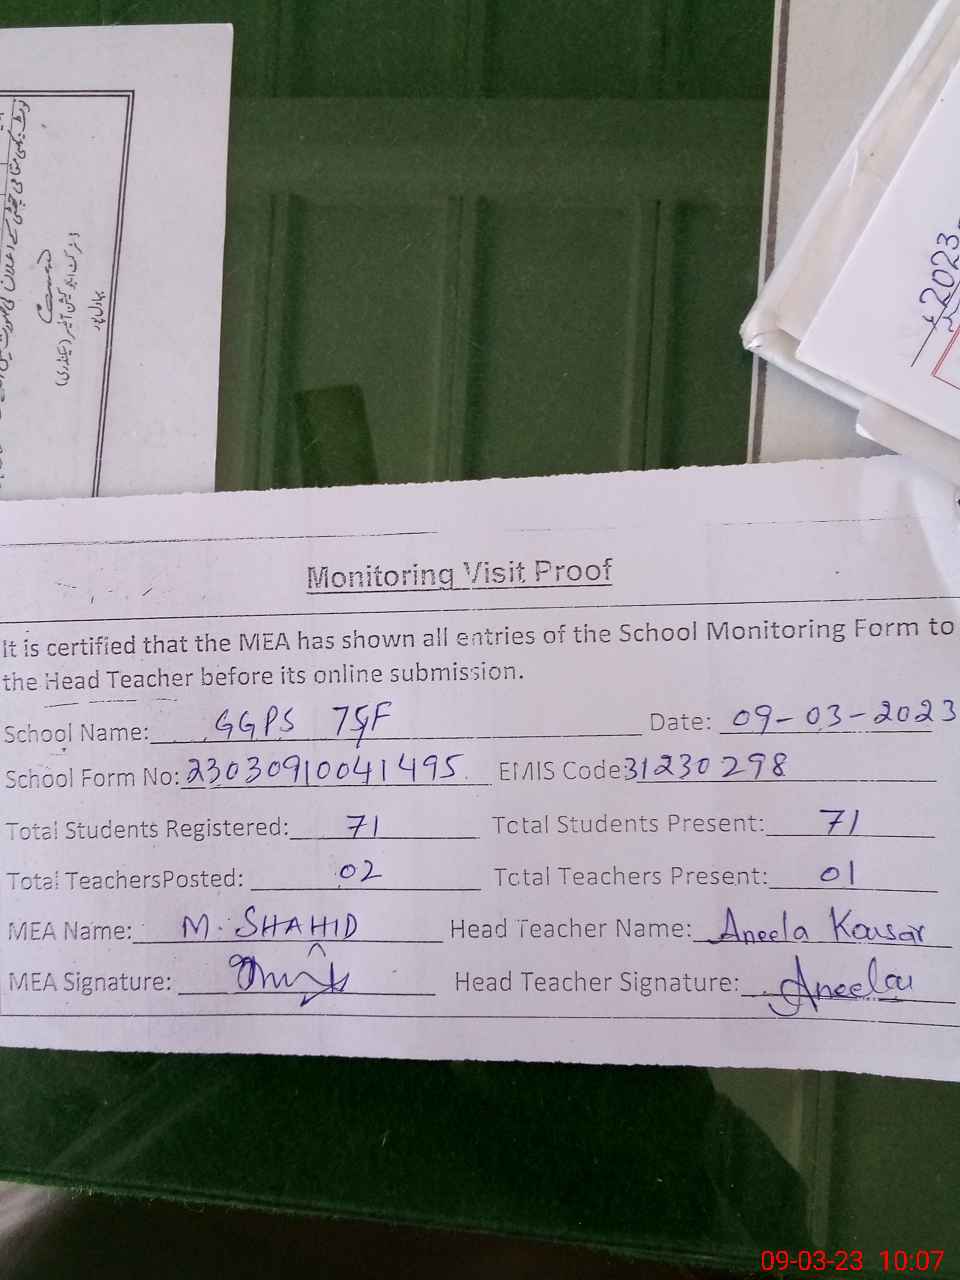 2023
Monitoring Visit Proof
It is certified that the MEA has shown all entries of the School Monitoring Form to
the Head Teacher before its online submission.
School Name: GGPS 75F Date: 09-03-2023
School Form No: 23030910041495 EMIS Code 31230298
Total Students Registered: 71 Total Students Present: 71
Total TeachersPosted: 02 Total Teachers Present: 01
MEA Name: M. SHAHID Head Teacher Name: Aneela Kousar
MEA Signature: Head Teacher Signature: Aneela
09-03-23 10:07